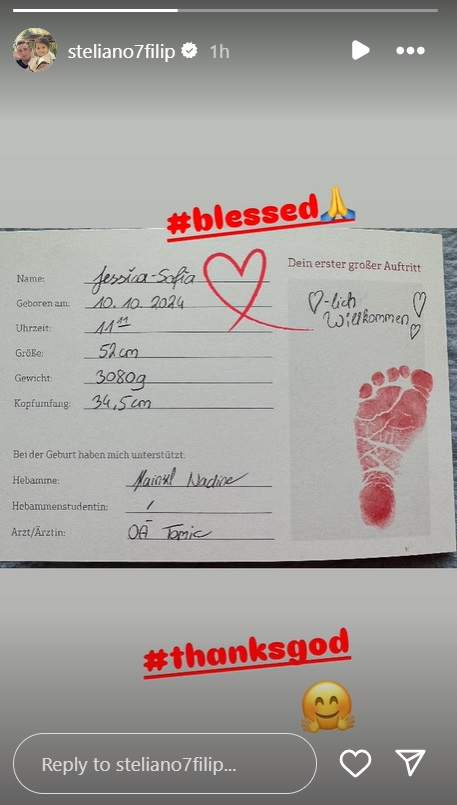 steliano7filip 1h
#blessed🙏
Dein erster großer Auftritt
♡-lich
Willkommen
Name: Jessica-Sofia
Geboren am: 10.10.2024
Uhrzeit: 11 11
Größe: 52cm
Gewicht: 3080g
Kopfumfang: 34,5cm
Bei der Geburt haben mich unterstützt:
Hebamme: Nadine
Hebammenstudentin: /
Arzt/Ärztin: OÄ Tomic
#thanksgod
🤗
Reply to steliano7filip...